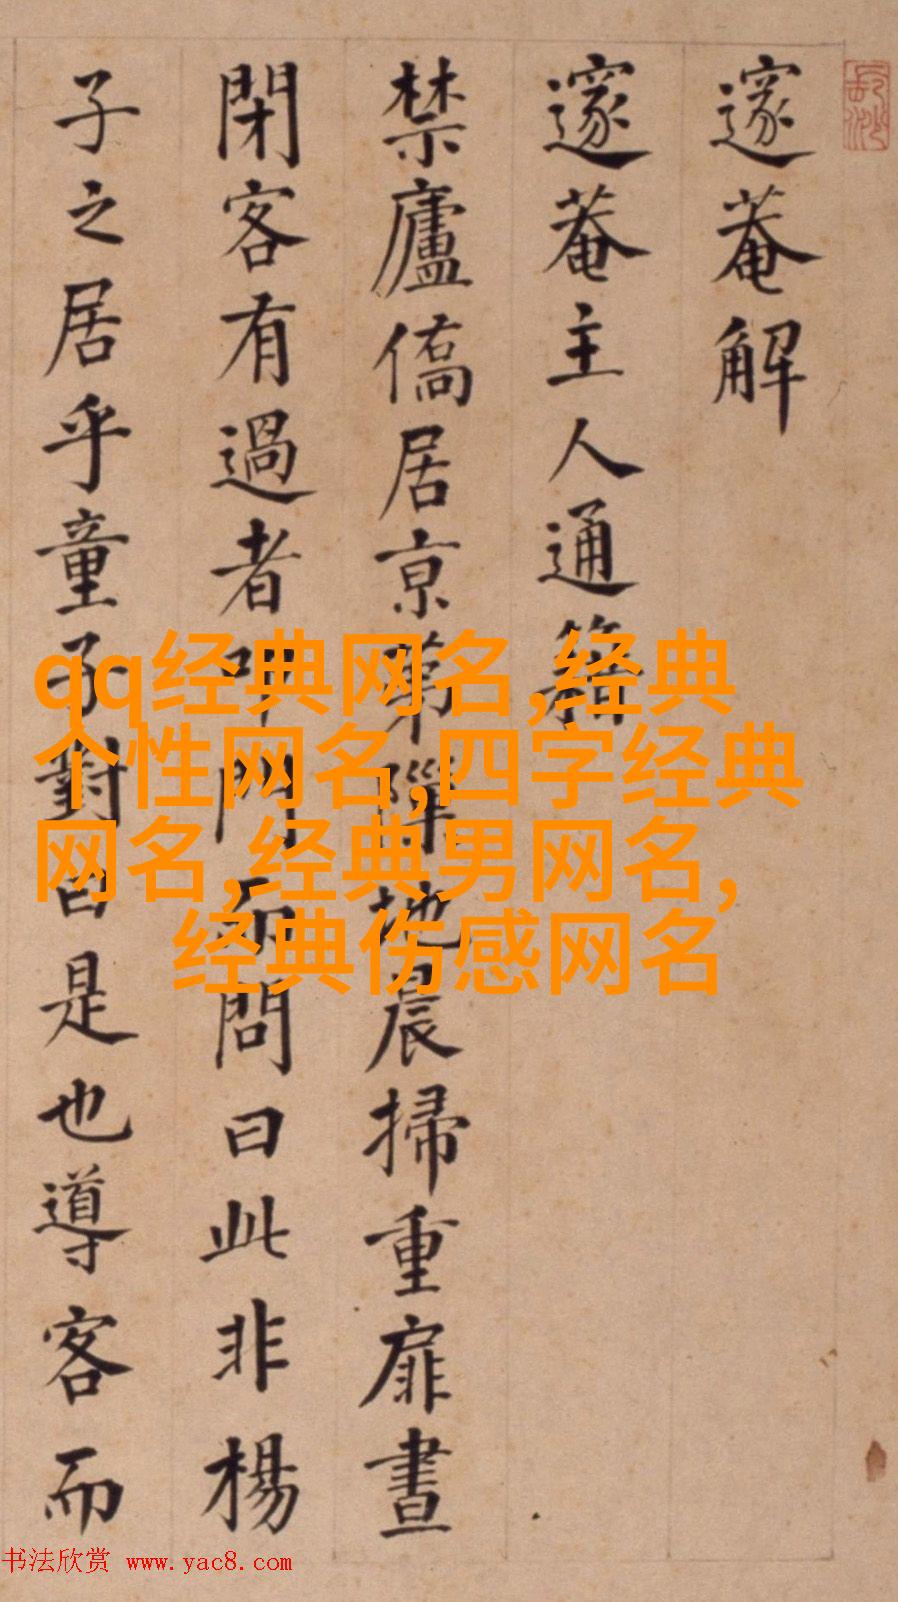 邃菴解
邃菴主人通籍
禁廬僑居京第隟地晨掃重扉晝
閉客有過者叩門而問曰此非楊
子之居乎童子對曰是也導客而
qq经典网名,经典
个性网名,四字经典
网名,经典男网名,
经典伤感网名
书法欣赏 www.yac8.com